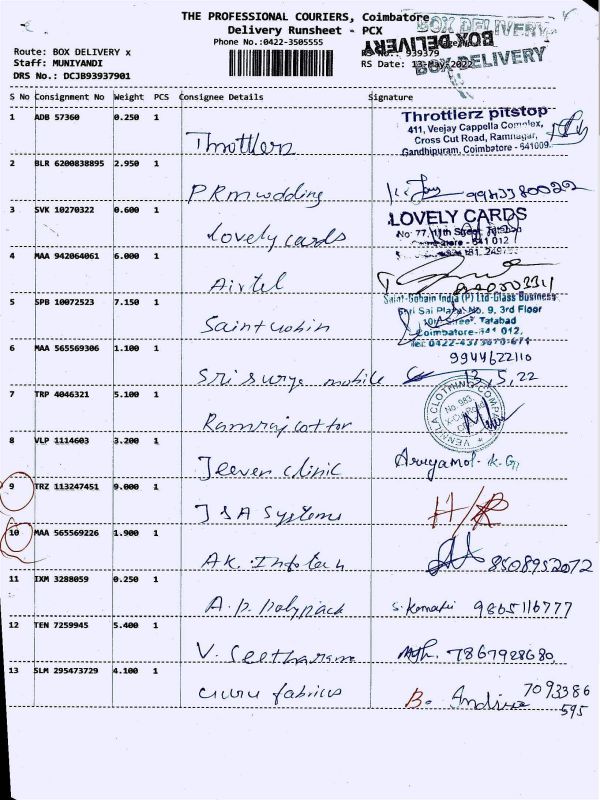 THE PROFESSIONAL COURIERS, Coimbatore
Delivery Runsheet - PCX
Phone No.:0422-3505555
BOX DELIVERY
BOX DELIVERY
BOX DELIVERY
Route: BOX DELIVERY x
Staff: MUNIYANDI
DRS No.: DCJB93937901
RS No.: 939379
RS Date: 13-May-2022
S No Consignment No Weight PCS Consignee Details Signature
1 ADB 57360 0.250 1 Throttlerz
Throttlerz pitstop
411, Veejay Cappella Complex,
Cross Cut Road, Ramnagar,
Gandhipuram, Coimbatore - 641009.
2 BLR 6200838895 2.950 1 PRM wedding 9943380022
3 SVK 10270322 0.600 1 Lovely cards
LOVELY CARDS
No 77, 11th Street, Tatabad
Coimbatore - 641 012
4 MAA 942064061 6.000 1 Airtel
5 SPB 10072523 7.150 1 Saint Gobin
Saint-Gobain India (P) Ltd-Glass Business
Sri Sai Plaza, No. 9, 3rd Floor
10th Street, Tatabad
Coimbatore-641 012,
Tel: 0422-4373670-671
6 MAA 565569306 1.100 1 Sri Surya mobile
9944622110
13,5,22
7 TRP 4046321 5.100 1 Ramraj cotton
VENKLA CLOTHING COMPANY
No. 983,
8 VLP 1114603 3.200 1 Jeeven clinic
9 TRZ 113247451 9.000 1 JSA Systems H/R
10 MAA 565569226 1.900 1 AK. Infotech 8508952072
11 IXM 3288059 0.250 1 A.P. Polypack S. Kamatchi 9865116777
12 TEN 7259945 5.400 1 V. Seetharam 7867928680
13 SLM 295473729 4.100 1 Guru fabrics B.
7093386
595